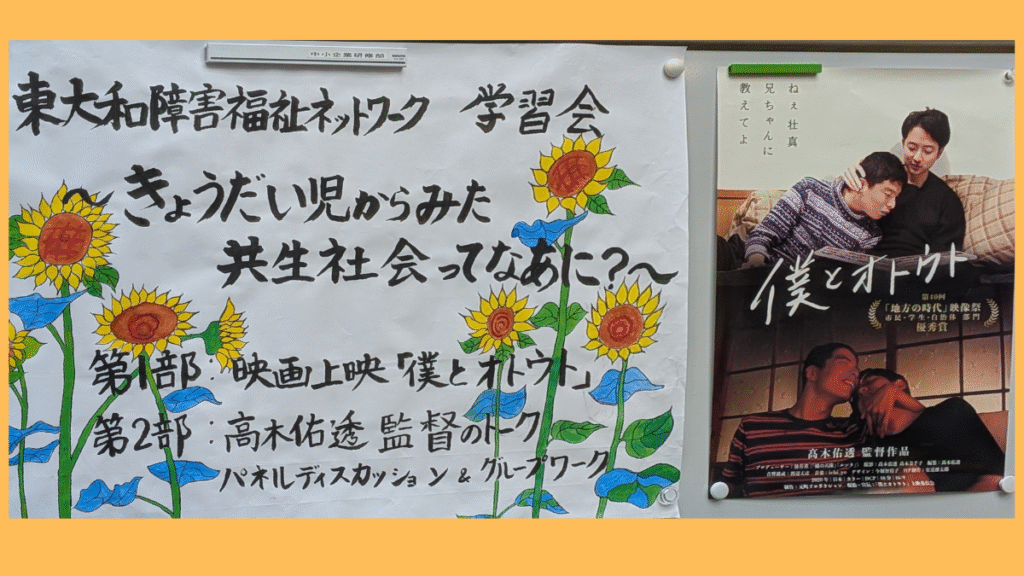 中小企業研修部
東大和障害福祉ネットワーク 学習会
～きょうだい児からみた
共生社会ってなあに?～
第1部:映画上映「僕とオトウト」
第2部:高木佑透監督のトーク
パネルディスカッション & グループワーク
ねぇ壮真
兄ちゃんに
教えてよ
僕とオトウト
第40回
「地方の時代」映像祭
市民・学生・自治体部門
優秀賞
高木佑透 監督作品